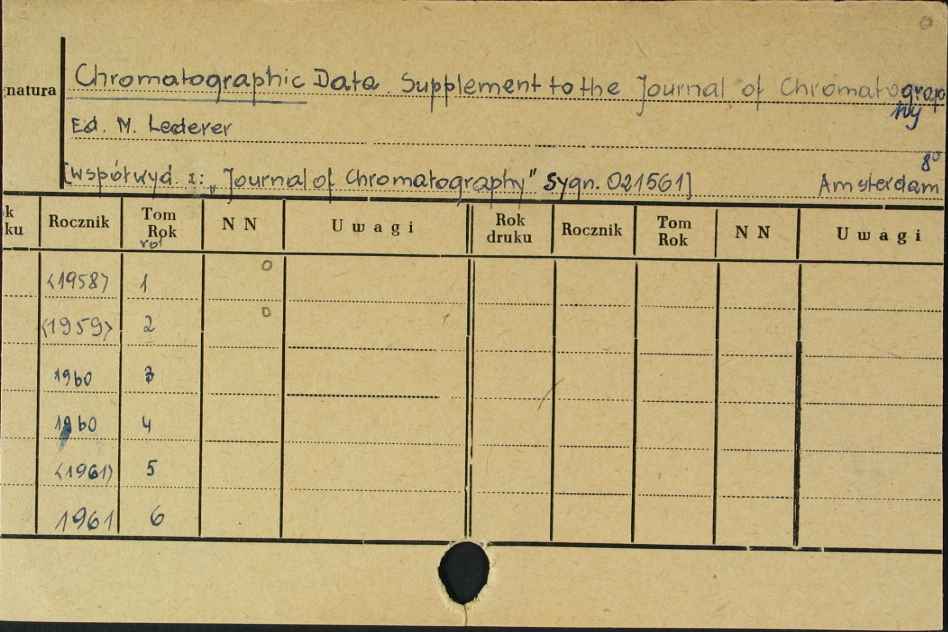 natura
Chromatographic Data. Supplement to the Journal of Chromatography
Ed. M. Lederer
8°
[współwyd. z: „Journal of Chromatography" Sygn. 021561] Amsterdam
k
ku Rocznik Tom
Rok
vol N N Uwagi Rok
druku Rocznik Tom
Rok N N Uwagi
<1958> 1 0
<1959> 2 0
1960 3
1960 4
<1961> 5
1961 6